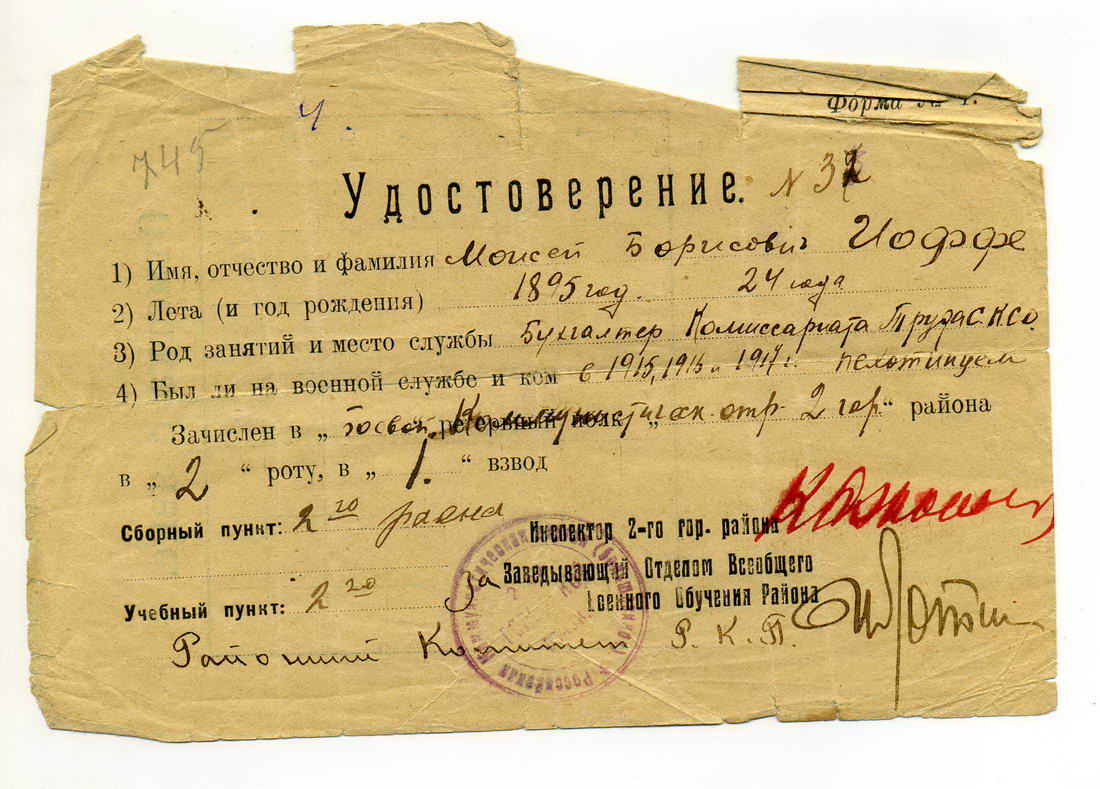 745
ч.
Форма №
Удостоверение. N 32
1) Имя, отчество и фамилия Моисей Борисович Иоффе
2) Лета (и год рождения) 1895 год. 24 года
3) Род занятий и место службы Бухгалтер Комиссариата Труда С.К.С.О.
4) Был ли на военной службе и кем в 1915, 1916 и 1917 г. пехотинцем
Зачислен в „ резервный полк Коммунистическ отр. 2 гор. “ района
в „ 2 “ роту, в „ 1. “ взвод
Сборный пункт: 2го раена
Инспектор 2-го гор. района
за Заведывающий Отделом Всеобщего
Военного Обучения Района
Учебный пункт: 2го
Районный Комитет Р. К. П.
Российская Коммунистическая